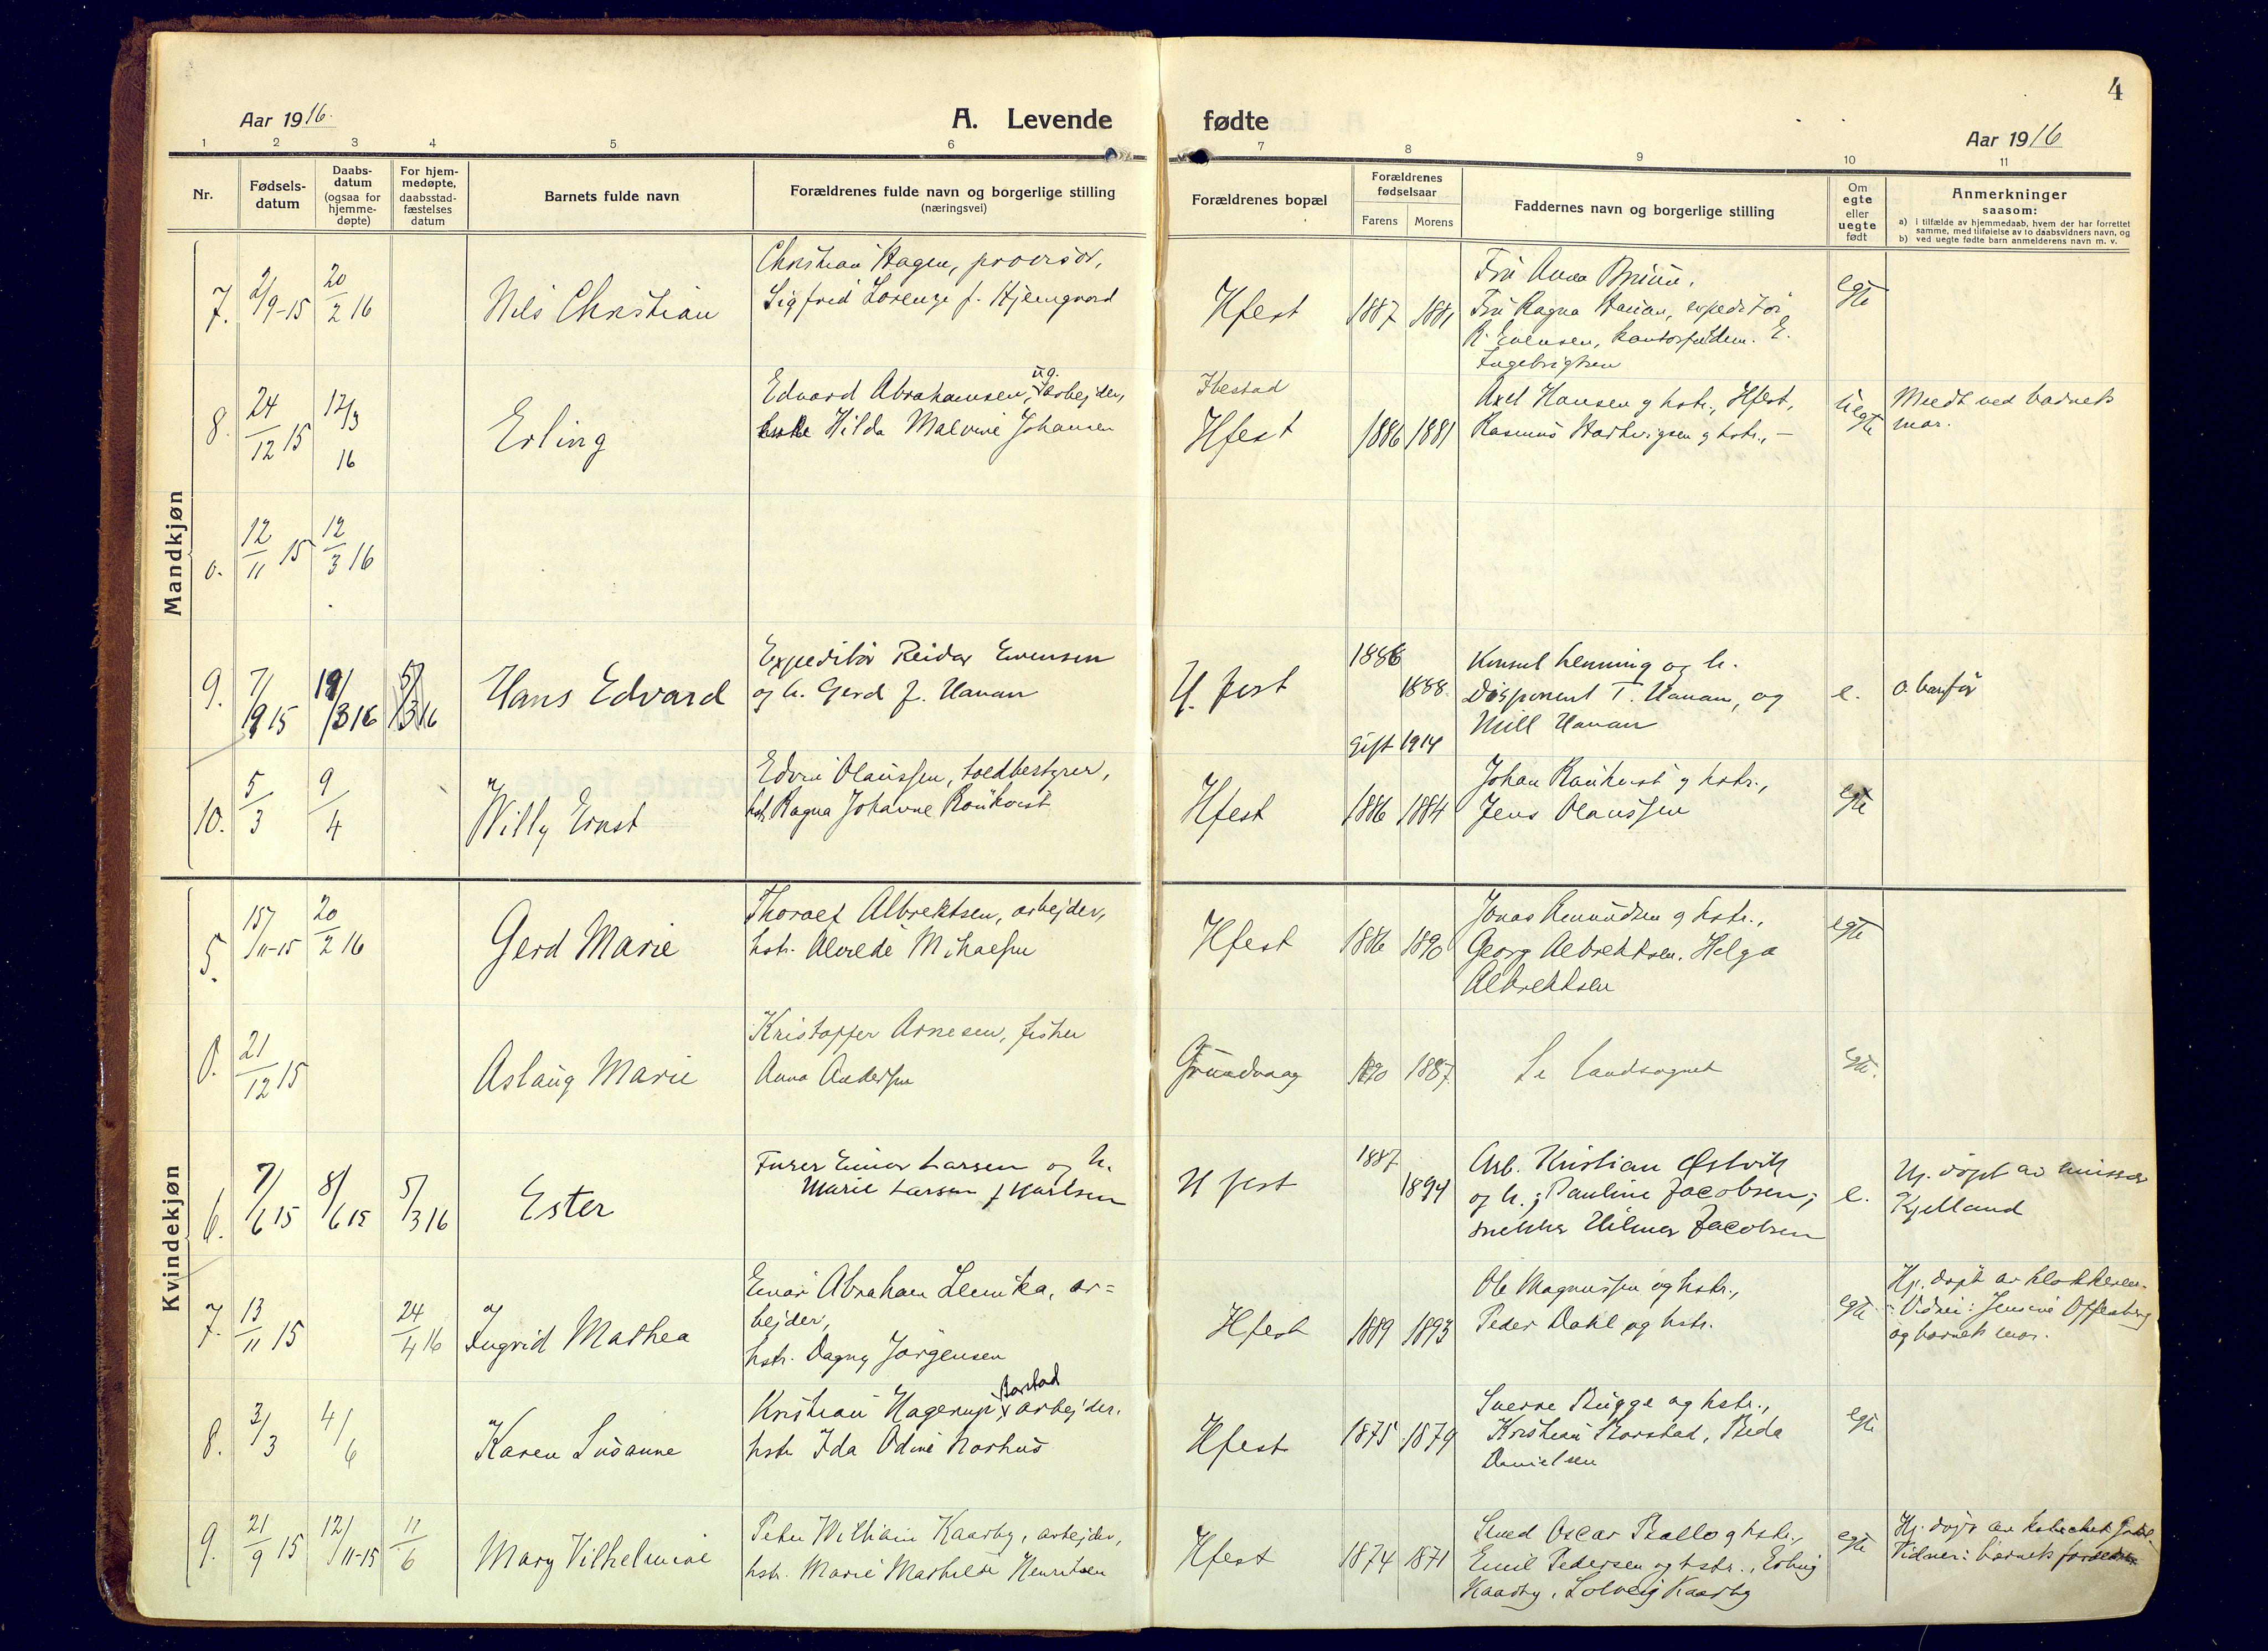 4
Aar 1916.
A. Levende fødte
Aar 1916
1 2 3 4 5 6 7 8 9 10 11
Nr.
Fødsels-
datum
Daabs-
datum
(ogsaa for
hjemme-
døpte)
For hjem-
medøpte,
daabsstad-
fæstelses
datum
Barnets fulde navn
Forældrenes fulde navn og borgerlige stilling
(næringsvei)
Forældrenes bopæl
Forældrenes
fødselsaar
Farens Morens
Faddernes navn og borgerlige stilling
Om
egte
eller
uegte
født
Anmerkninger
saasom:
a) i tilfælde av hjemmedaab, hvem der har forrettet
samme, med tilføielse av to daabsvidners navn, og
b) ved uegte fødte barn anmelderens navn m. v.
Mandkjøn
7.
2/9-15
20/2 16
Nils Christian
Christian Hagen, provisor,
Sigfrid Lorenze f. Hjemgaard
Hfest
1887 1881
Fru Anna
Fru Ragna Hanan, expeditør
R. Evensen, E.
Ingebrigtsen
egte
8.
24/12 15
12/3 16
Erling
Edvard Abrahamsen, ug. arbejder,
Hilda Malvine Johansen
Ibestad
Hfest
1886 1881
Axel Hansen og hstr., Hfest,
Rasmus Hartvigsen og hstr., –
Uegte
Meldt ved barnets
mor.
0.
12/11 15
12/3 16
9.
7/9 15
19/3 16
5/3 16
Hans Edvard
Expeditør Reidar Evensen
og h. Gerd f. Hanan
H. fest
1886
1888
Gift 1914
Konsul Henning og h.
Disponent T. Hanan, og
Mill Hanan
e.
o. banfør
10.
5/3
9/4
Willy Ernst
Edvin Olaussen, toldbestyrer,
hstr. Ragna Johanne Rønkvist
Hfest
1886 1884
Johan Rønkvist og hstr.,
Jens Olaussen
egte
Kvindekjøn
5.
15/11-15
20/2 16
Gerd Marie
Thoralf Albrektsen, arbejder,
hstr. Alvilde Mikalsen
Hfest
1886 1890
Jonas Amundsen og hstr.,
Georg Albrektsen, Helga
Albrektsen
egte
0.
21/12 15
Aslaug Marie
Kristoffer Arnesen, fisker
Anna Andersen
Grundvaag
1890 1887
Se Landsognet
egte.
6.
7/6 15
8/6 15
5/3 16
Ester
Furer Einar Larsen og h.
Marie Larsen f Karlsen
H fest
1887
1894
Arb. Kristian Østvik
og h.; Pauline Jacobsen;
snekker Hilmar Jacobsen
e.
Hj. døpt av emissær
Kjelland
7.
13/11 15
24/4 16
Ingrid Mathea
Einar Abraham Lemika, ar=
bejder,
hstr. Dagny Jørgensen
Hfest
1889 1893
Ole Magnussen og hstr.,
Peder Dahl og hstr.
egte
Hj. døpt av klokkeren.
Vidner: Jensine Offenberg
og barnets mor.
8.
3/3
4/6
Karen Susanne
Kristian Hagerup Borstad arbejder.
hstr. Ida Odine Aarhus
Hfest
1875 1879
Sverre Bugge og hstr.,
Kristian Borstad, Beda
Danielsen
egte
9.
21/9 15
12/11-15
11/6
Mary Vilhelmine
Peter William Kaarby, arbejder,
hstr. Marie Mathilde Henriksen
Hfest
1874 1871
Smed Oscar Ballo og hstr.,
Emil Pedersen og hstr., Erling
Kaarby, Solveig Kaarby
egte
Hj. døpt av kateket
Vidner: barnets forældre